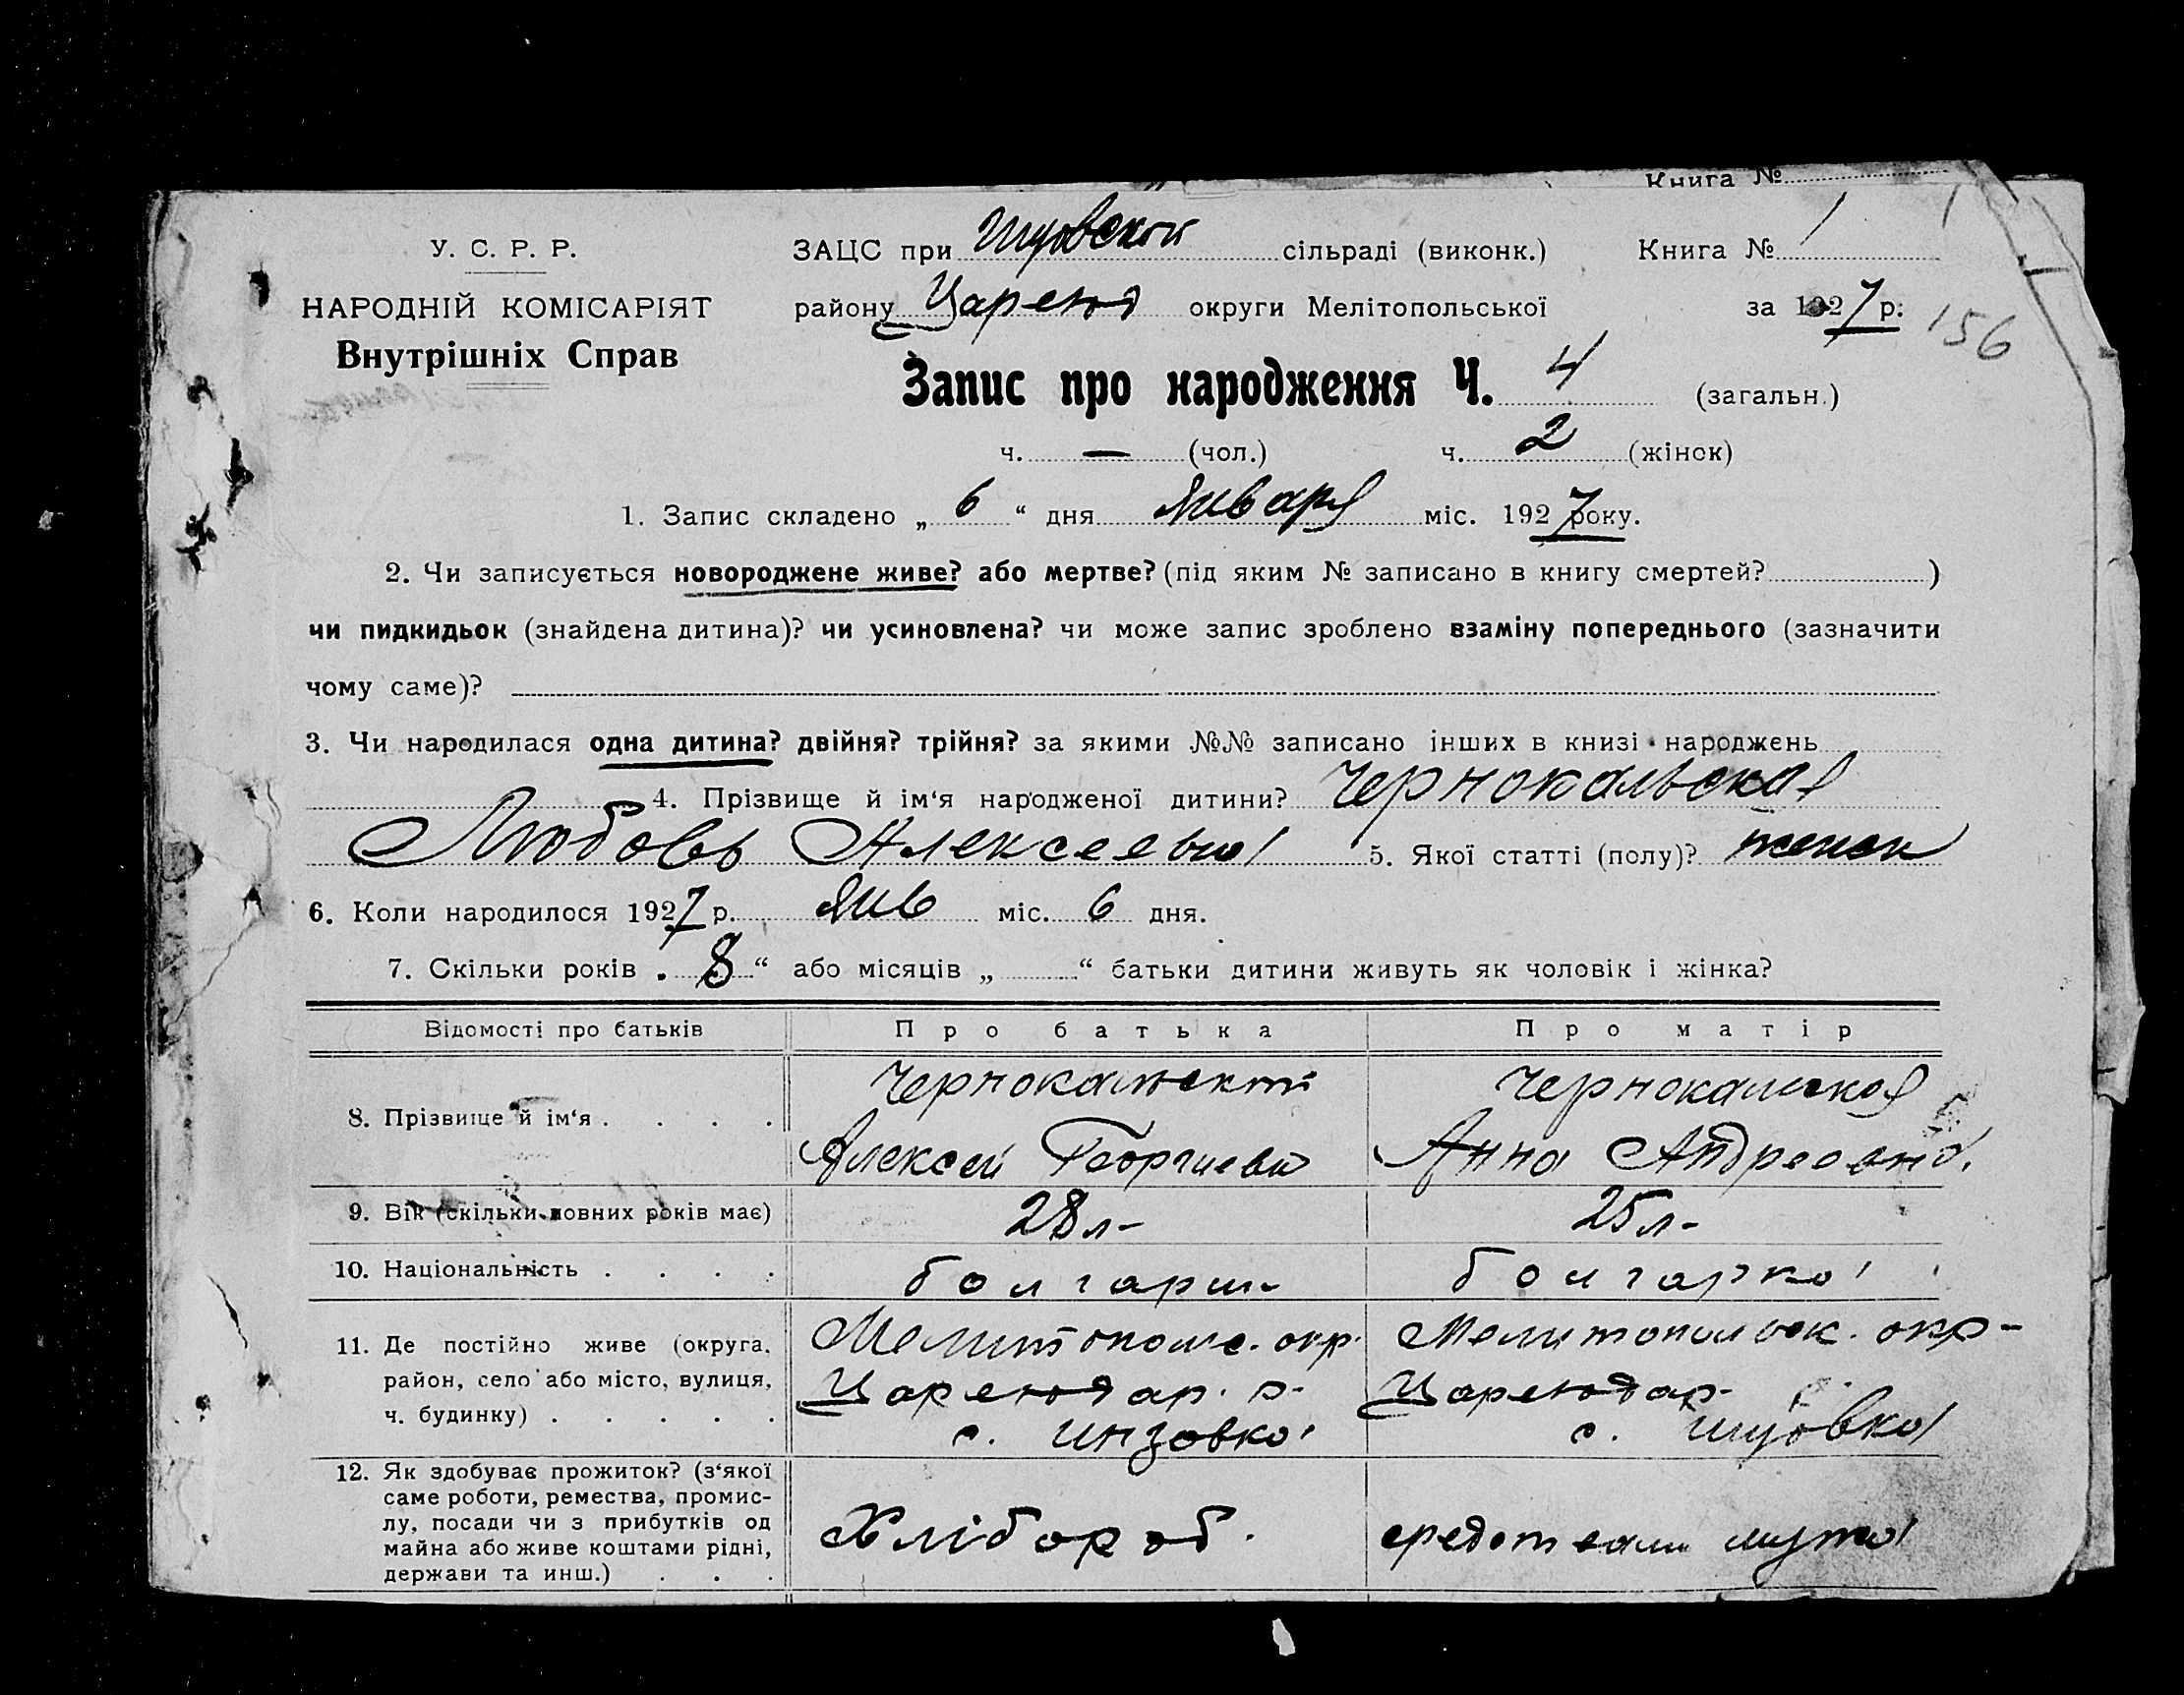 Книга №
У. С. Р. Р.
НАРОДНІЙ КОМІСАРІЯТ
Внутрішніх Справ
ЗАЦС при Инзовской сільраді (виконк.) Книга № 1
району Царекд округи Мелітопольської за 1927 р.
156
Запис про народження Ч. 4 (загальн.)
ч. — (чол.) ч. 2 (жінок)
1. Запис складено „ 6 “ дня Января міс. 1927 року.
2. Чи записується новороджене живе? або мертве? (під яким № записано в книгу смертей? )
чи пидкидьок (знайдена дитина)? чи усиновлена? чи може запис зроблено взаміну попереднього (зазначити
чому саме)?
3. Чи народилася одна дитина? двійня? трійня? за якими №№ записано інших в книзі народжень
4. Прізвище й ім‘я народженої дитини? Чернокальская
Любовь Алексеевна 5. Якої статті (полу)? женск
6. Коли народилося 1927 р. Янв міс. 6 дня.
7. Скільки років „ 8 “ або місяців „ “ батьки дитини живуть як чоловік і жінка?
Відомості про батьків Про батька Про матір
8. Прізвище й ім‘я . . . .
Чернокальский
Алексей Георгиев
Чернокальская
Анна Андреевна.
9. Вік (скільки повних років має) 28 л- 25 л-
10. Національність . . . . болгарин болгарка
11. Де постійно живе (округа,
район, село або місто, вулиця,
ч. будинку) . . . . .
Мелитопольс. окр.
Царекодар. р-
с. Инзовка
Мелитопольск. окр-
Царекодар-
с. Инзовка
12. Як здобуває прожиток? (з‘якої
саме роботи, ремества, промис-
лу, посади чи з прибутків од
майна або живе коштами рідні,
держави та инш.) . . .
Хлібороб.
средствами мужа